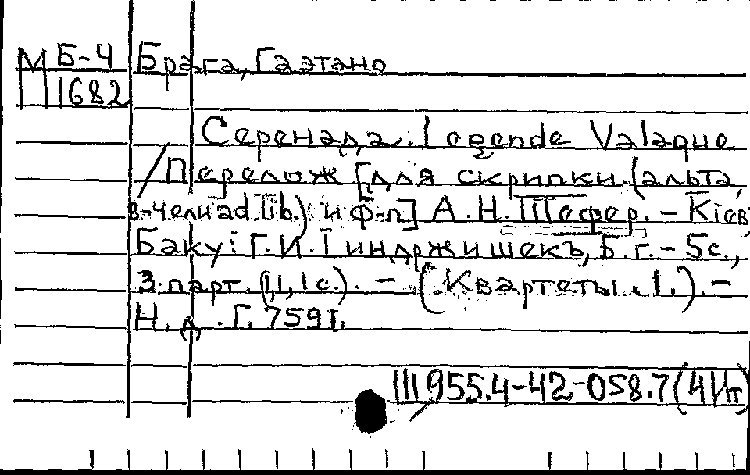 М Б-4 Брага, Гаэтано
1682
Серенада. Legende Valaque
/Перелож [для скрипки (альта,
в-чели ad lib.) и ф-п] А.Н. Шефер. – Кіев,
Баку: Г.И. Індржишекъ, Б.г. – 5с.,
3 парт. (1,1,1с.). – (Квартеты. 1.). –
Н.д. Г.759І.
III 955.4-42-058.7(4)